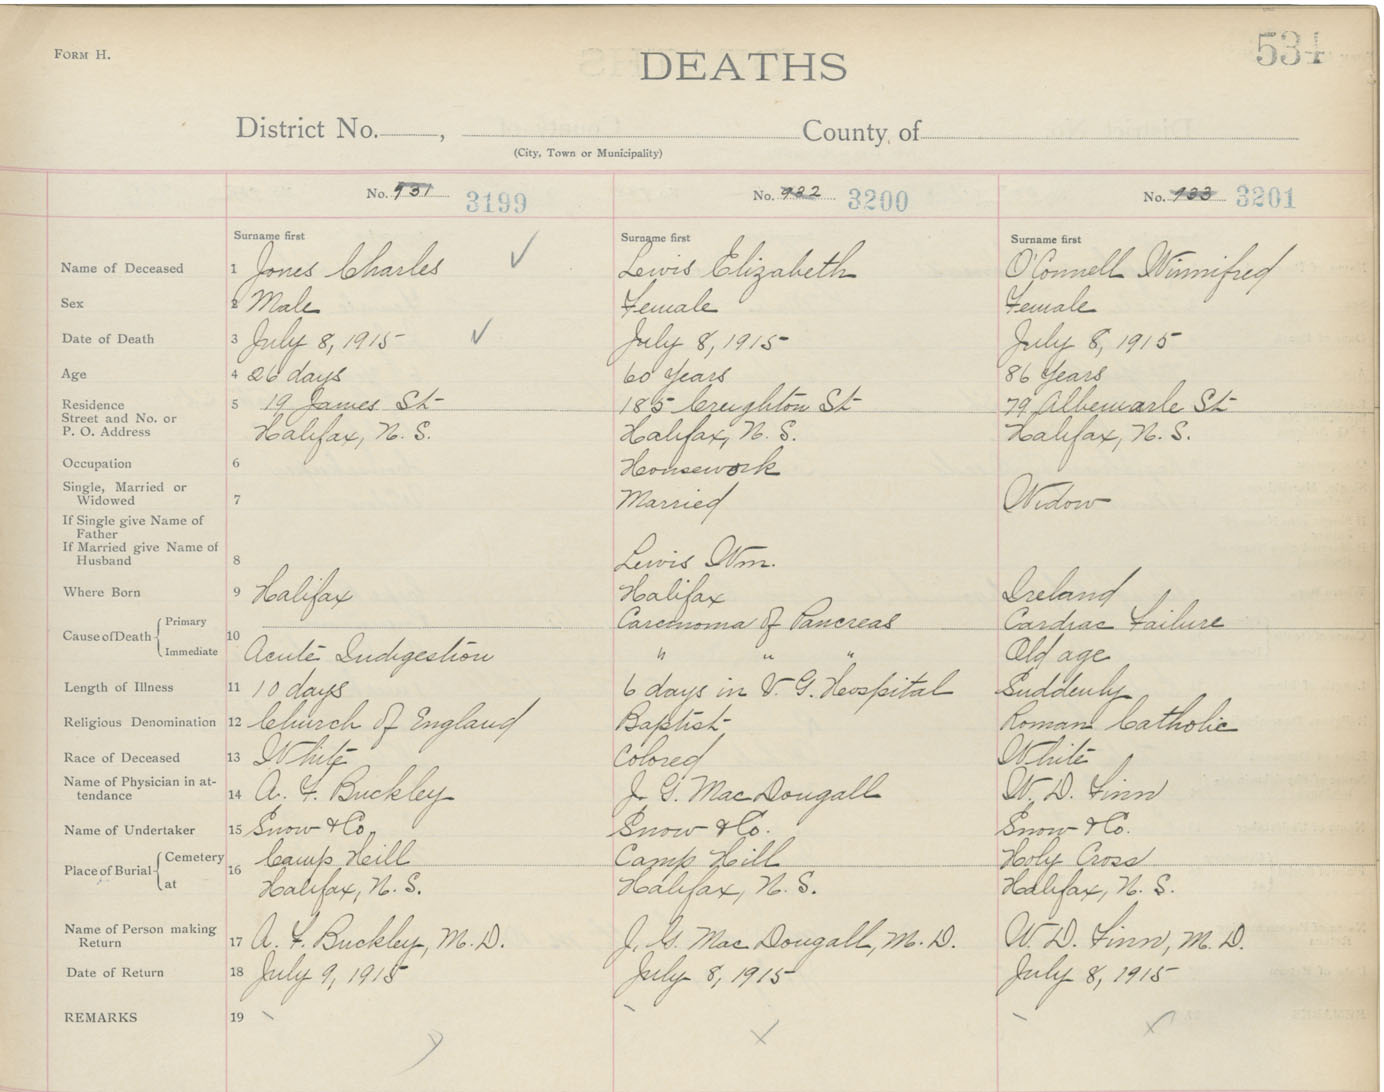 534
FORM H.
DEATHS
District No. , County of
(City, Town or Municipality)
No. 931 3199 No. 932 3200 No. 933 3201
Surname first Surname first Surname first
Name of Deceased 1 Jones Charles Lewis Elizabeth O'Connell Winnifred
Sex 2 Male Female Female
Date of Death 3 July 8, 1915 July 8, 1915 July 8, 1915
Age 4 26 days 60 Years 86 Years
Residence 5 19 James St 185 Creighton St 79 Albemarle St
Street and No. or
P. O. Address Halifax, N. S. Halifax, N. S. Halifax, N. S.
Occupation 6 Housework
Single, Married or
Widowed 7 Married Widow
If Single give Name of
Father
If Married give Name of
Husband 8 Lewis Wm.
Where Born 9 Halifax Halifax Ireland
Cause of Death Primary 10 Carcinoma of Pancreas Cardiac Failure
Immediate Acute Indigestion " " " Old age
Length of Illness 11 10 days 6 days in V. G. Hospital Suddenly
Religious Denomination 12 Church of England Baptist Roman Catholic
Race of Deceased 13 White Colored White
Name of Physician in at-
tendance 14 A. F. Buckley J. G. MacDougall W. D. Finn
Name of Undertaker 15 Snow & Co. Snow & Co. Snow & Co.
Place of Burial Cemetery 16 Camp Hill Camp Hill Holy Cross
at Halifax, N. S. Halifax, N. S. Halifax, N. S.
Name of Person making
Return 17 A. F. Buckley, M. D. J. G. MacDougall, M. D. W. D. Finn, M. D.
Date of Return 18 July 9, 1915 July 8, 1915 July 8, 1915
REMARKS 19